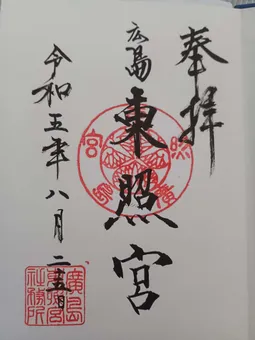 奉拝
広島
東照宮
令和五年八月二十五日
廣島
東照宮
社務所